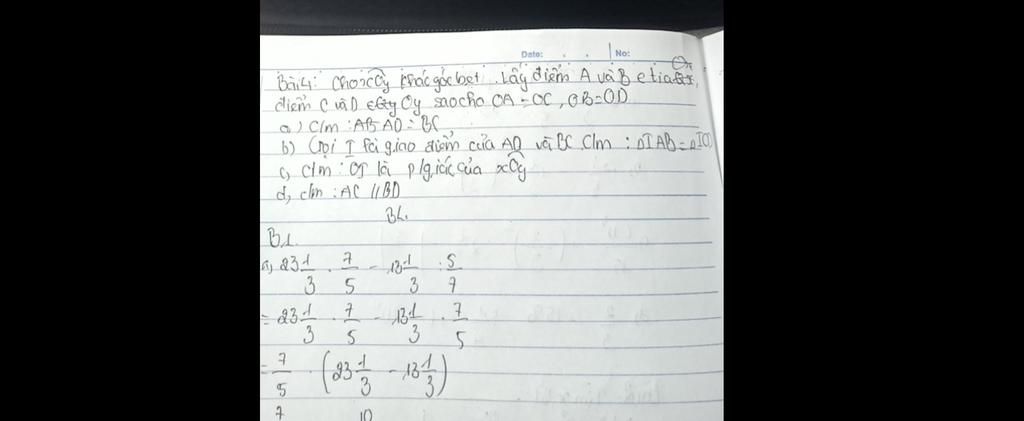 Date: . . No:
Bài4: Cho xOy khác góc bẹt. Lấy điểm A và B e tia Ox,
điểm C và D e Oy sao cho OA = OC, OB = OD
a) C/m : AD = BC
b) Gọi I là giao điểm của AD và BC C/m : ΔIAB = ΔICD
c, c/m : OI là p/giác của xOy
d, c/m : AC // BD
BL.
B1.
a, 23 1/3 . 7/5 - 13 1/3 : 5/7
= 23 1/3 . 7/5 - 13 1/3 . 7/5
= 7/5 . (23 1/3 - 13 1/3)
7 10